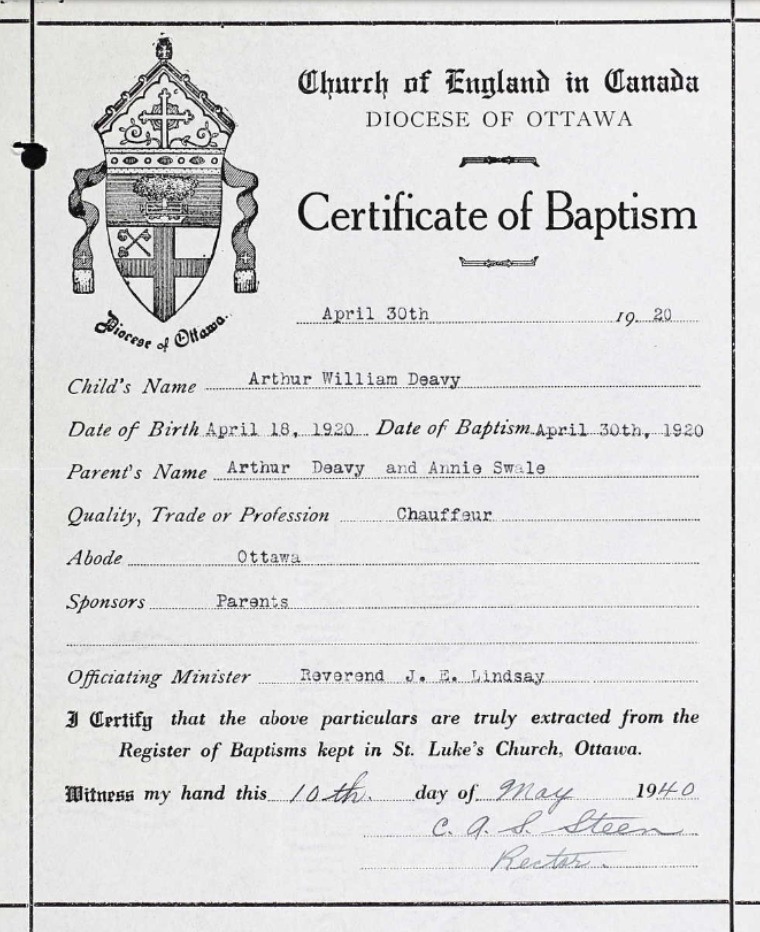 Church of England in Canada
DIOCESE OF OTTAWA
Certificate of Baptism
Diocese of Ottawa.
April 30th 19 20
Child's Name Arthur William Deavy
Date of Birth April 18, 1920 Date of Baptism April 30th, 1920
Parent's Name Arthur Deavy and Annie Swale
Quality, Trade or Profession Chauffeur
Abode Ottawa
Sponsors Parents
Officiating Minister Reverend J. E. Lindsay
I Certify that the above particulars are truly extracted from the
Register of Baptisms kept in St. Luke's Church, Ottawa.
Witness my hand this 10th. day of May 1940
C. A. S. Steen
Rector.